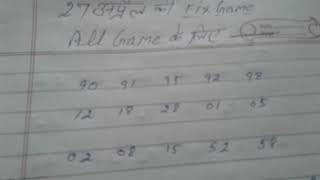 27 अप्रैल को Fix Game
All Game के लिए
90 91 95 92 98
12 18 28 01 05
02 08 15 52 58